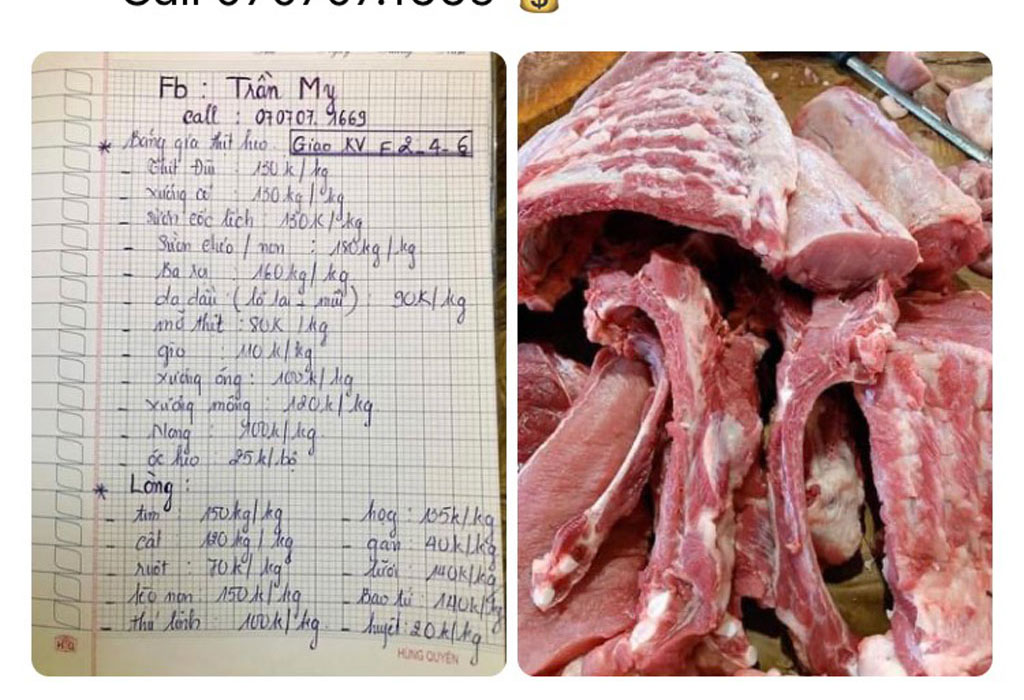 Call 070707.1669 💰
Fb : Trần My
call : 070707. 1669
* Bảng giá thịt heo. Giao KV F 2_4_6
- Thịt Đùi : 130k/kg
- xương cổ : 130kg/kg
- sườn cốc lếch : 130k/kg
- Sườn chéo / non : 180kg/kg
- Ba rọi : 160kg/kg
- da đầu ( lỗ tai - mũi ) : 90k/kg
- mỡ thịt : 80k /kg
- giò : 110k/kg
- xương ống : 100k/kg
- xương mỏng : 120k/kg.
- Nọng : 100k/kg.
- óc heo : 25k/bộ
* Lòng :
- tim : 150kg/kg - họg : 135k/kg
- cật : 120kg / kg - gan : 40k/kg
- ruột : 70k / kg - lưỡi : 140k/kg
- kéo non : 150k / kg - Bao tử : 140k/kg
- thá lỉnh : 100k/kg - huyết : 20k/kg
HQ
HÙNG QUYÊN